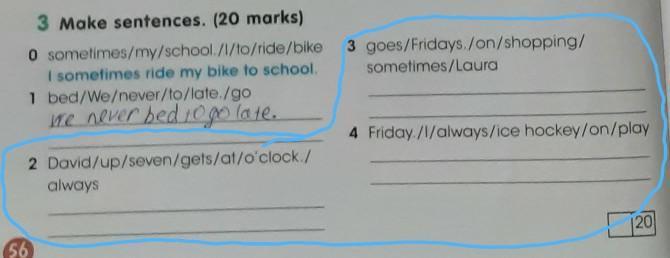 3 Make sentences. (20 marks)
0 sometimes/my/school./I/to/ride/bike
I sometimes ride my bike to school.
1 bed/We/never/to/late./go
We never bed to go late.
2 David/up/seven/gets/at/o'clock./
always
3 goes/Fridays./on/shopping/
sometimes/Laura
4 Friday./I/always/ice hockey/on/play
20
56